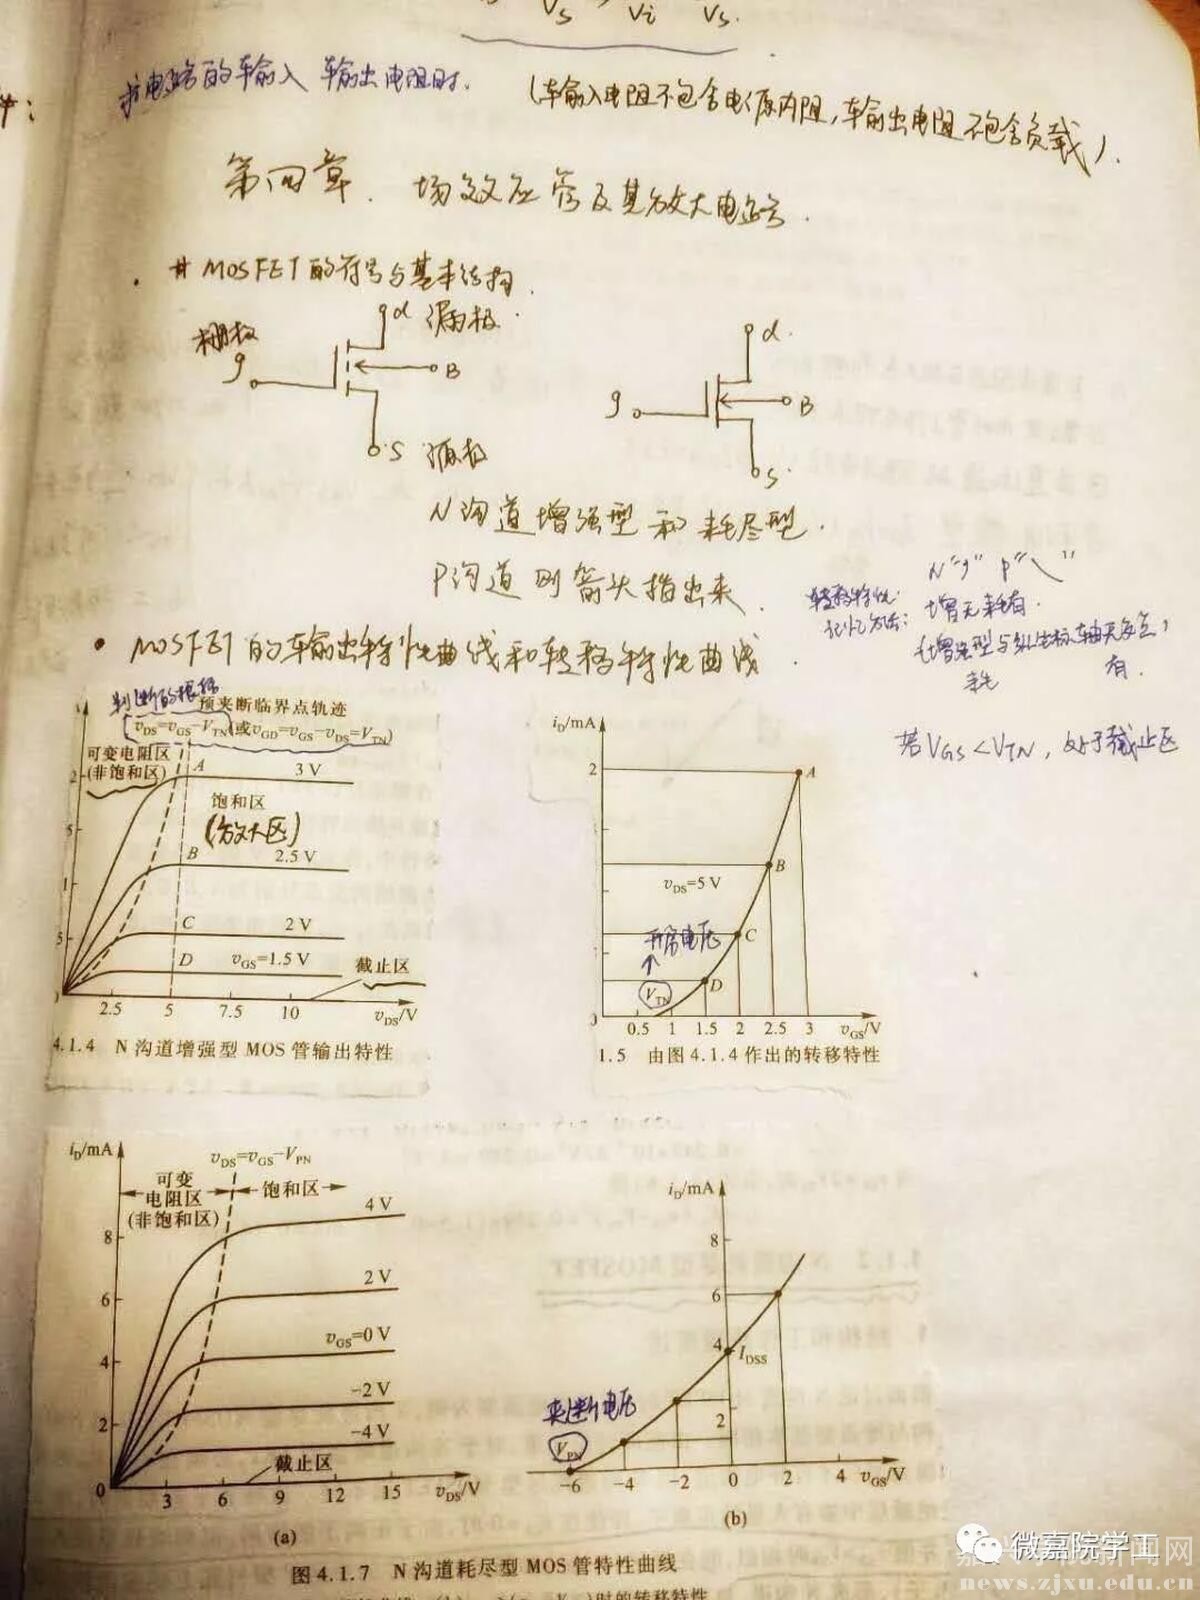 Vs Vi Vs.
求电路的输入 输出电阻时. (输入电阻不包含电源内阻,输出电阻不包含负载).
第四章. 场效应管及其放大电路.
MOSFET的符号与基本结构.
栅极
g
d 漏极.
B
s 源极
d.
g
B
s.
N沟道增强型和耗尽型.
P沟道则箭头指出来.
转移特性.
记忆方法:
增无耗有.
(增强型与纵坐标轴无交点,
耗 有.
若VGS<VTN,处于截止区
• MOSFET的输出特性曲线和转移特性曲线.
判断的根据
预夹断临界点轨迹
vDS=vGS−VTN(或vGD=vGS−vDS=VTN)
可变电阻区
(非饱和区)
A
3 V
饱和区
(放大区)
B
2.5 V
C
2 V
D
vGS=1.5 V
截止区
2.5 5 7.5 10 vDS/V
4.1.4 N 沟道增强型 MOS 管输出特性
iD/mA
2
A
B
vDS=5 V
C
开启电压
D
VTN
0.5 1 1.5 2 2.5 3 vGS/V
1.5 由图 4.1.4 作出的转移特性
iD/mA
vDS=vGS−VPN
可变
电阻区
(非饱和区)
饱和区
4 V
8
2 V
6
vGS=0 V
4
−2 V
2
−4 V
截止区
0
3 6 9 12 15 vDS/V
(a)
iD/mA
8
6
4
IDSS
夹断电压
2
VPN
−6 −4 −2 0 2 4 vGS/V
(b)
图 4.1.7 N 沟道耗尽型 MOS 管特性曲线
时的转移特性
微嘉院学工
news.zjxu.edu.cn